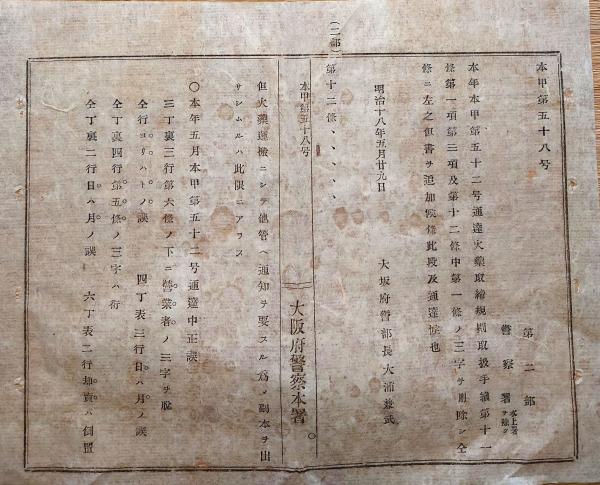 本甲第五十八号
第二部
警察署水上署ヲ除ク
本年本甲第五十二号通達火藥取締規則取扱手續第十一
條第一項第三項及第十二條中第一條ノ三字ヲ削除シ仝
條ニ左之但書ヲ追加候條此段及通達候也
明治十八年五月廿九日
大坂府警部長大浦兼武
(二部)第十二條、、、、、、
本甲第五十八号
大阪府警察本署
但火藥運搬ニシテ他管ヘ通知ヲ要スル爲メ謄本ヲ出
サシムルハ此限ニアラス
〇本年五月本甲第五十二号通達中正誤
三丁裏三行第六條ノ下ニ營業者ノ三字ヲ脫
仝行ヨリハトノ誤 四丁表三行日ハ月ノ誤
仝丁裏四行第五條ノ三字ハ衍
仝丁裏二行日ハ月ノ誤 六丁表二行却賣ハ倒置